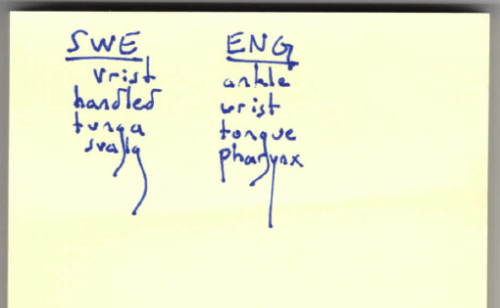 SWE ENG
vrist ankle
handled wrist
tunga tongue
svalg pharynx